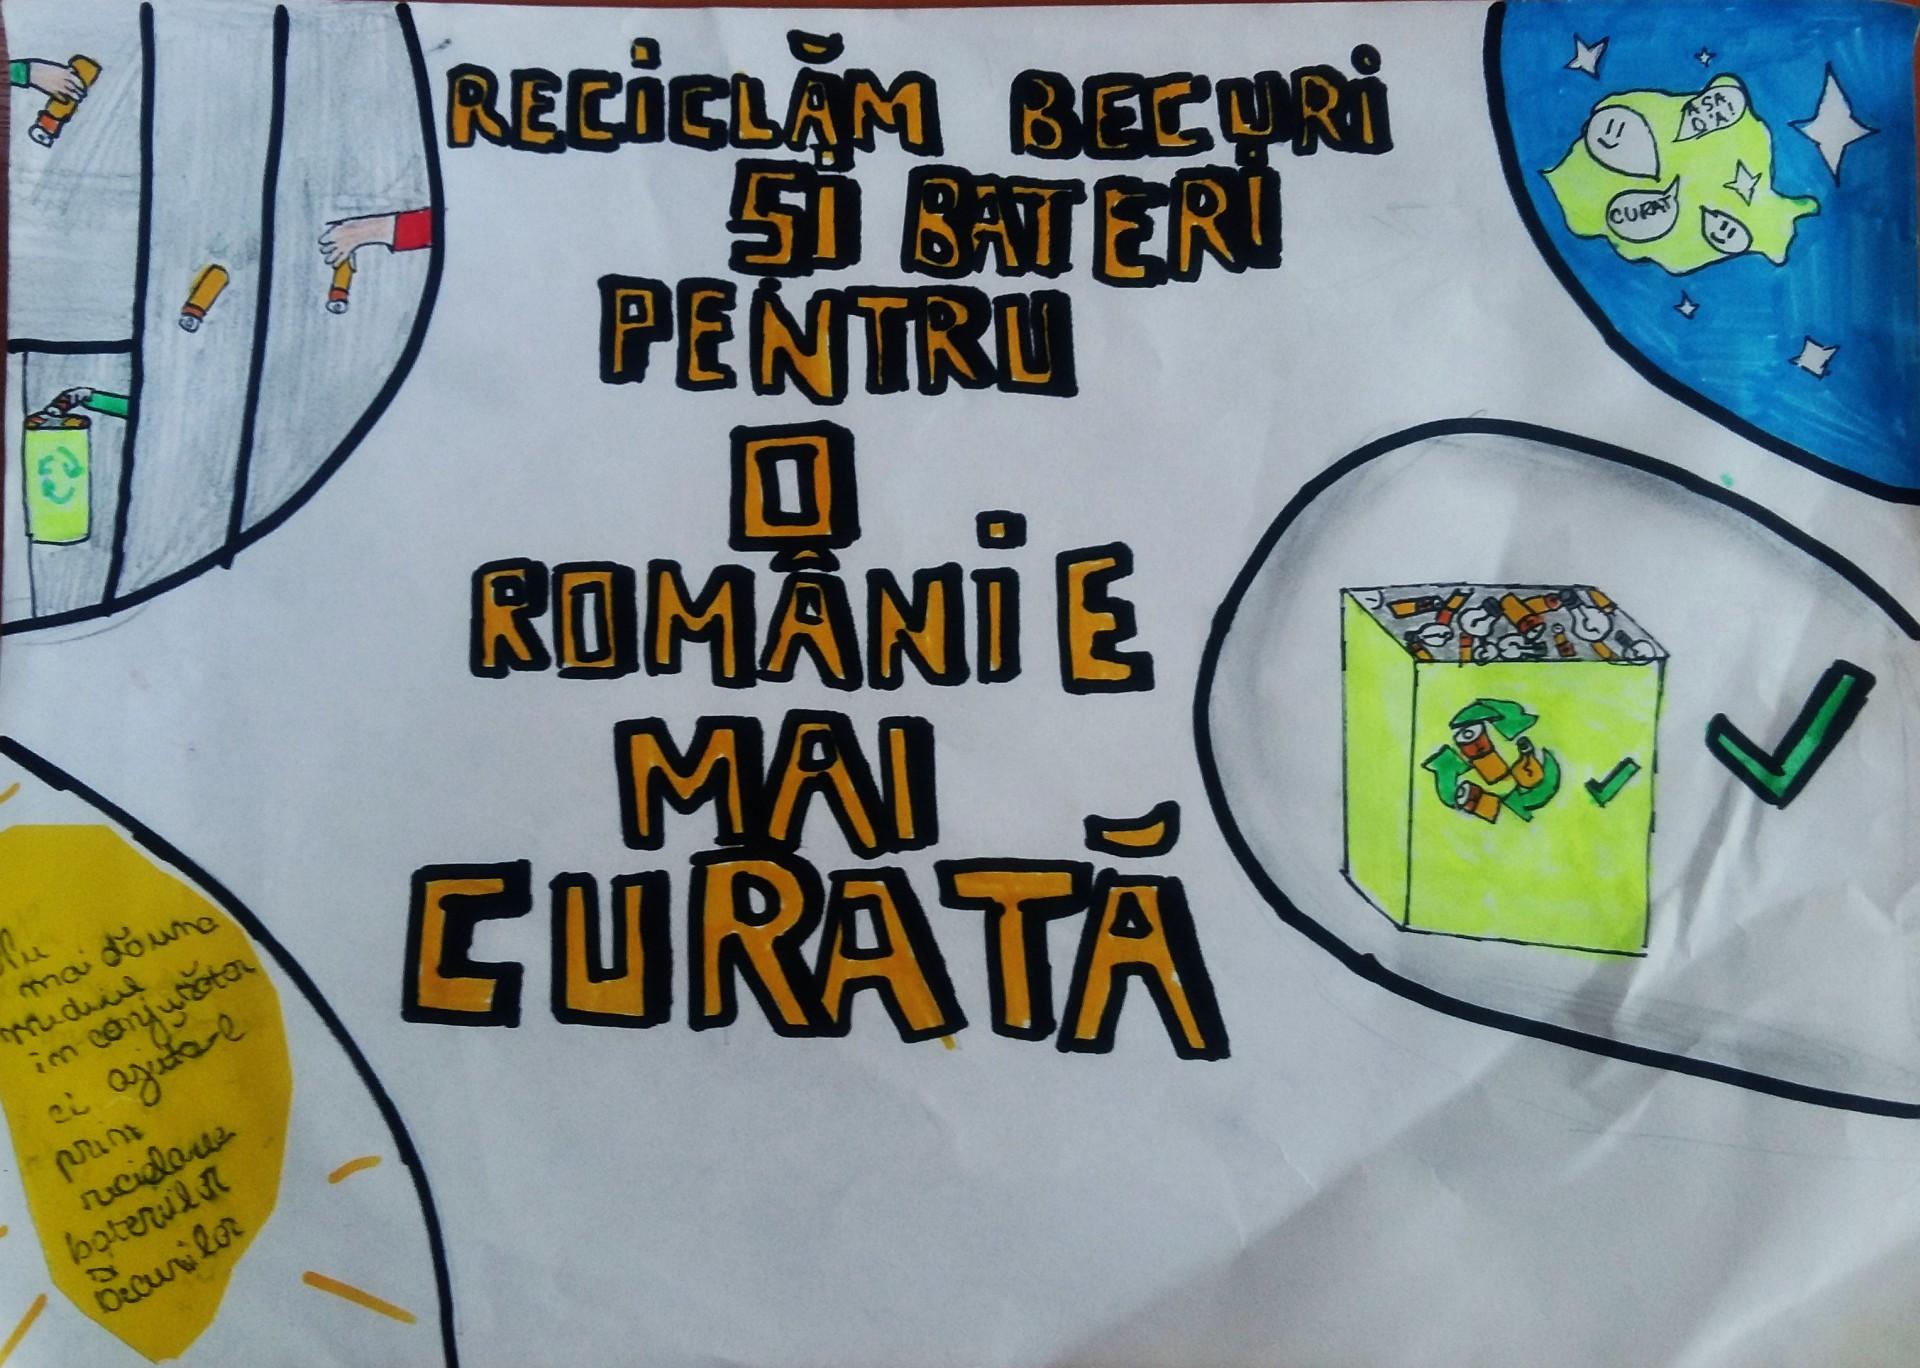 RECICLĂM BECURI
ȘI BATERI
PENTRU
O
ROMÂNIE
MAI
CURATĂ
AȘA
D'A!
CURAT
Nu
mai dăuna
mediului
înconjurător
ci ajută-l
prin
reciclarea
bateriilor
și
becurilor